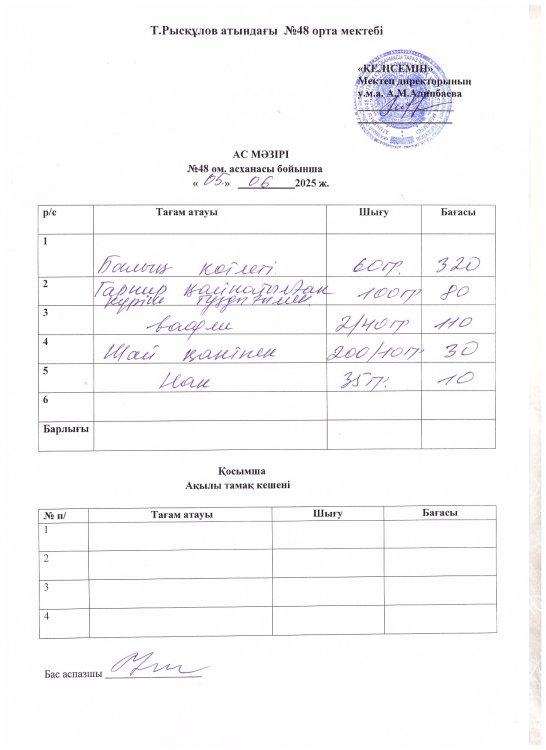 Т.Рысқұлов атындағы №48 орта мектебі
«КЕЛІСЕМІН»
Мектеп директорының
у.м.а. А.М.Адинбаева
АС МӘЗІРІ
№48 ом. асханасы бойынша
« 05 » 06 2025 ж.
р/с Тағам атауы Шығу Бағасы
1 Балық котлеті 60гр. 320
2 Гарнир қайнатылған күріш тұздығымен. 100гр 80
3 вафли 2/40гр 110
4 Шай қантпен 200/10гр 30
5 Нан 35гр. 10
6
Барлығы
Қосымша
Ақылы тамақ кешені
№ п/ Тағам атауы Шығу Бағасы
1
2
3
4
Бас аспазшы